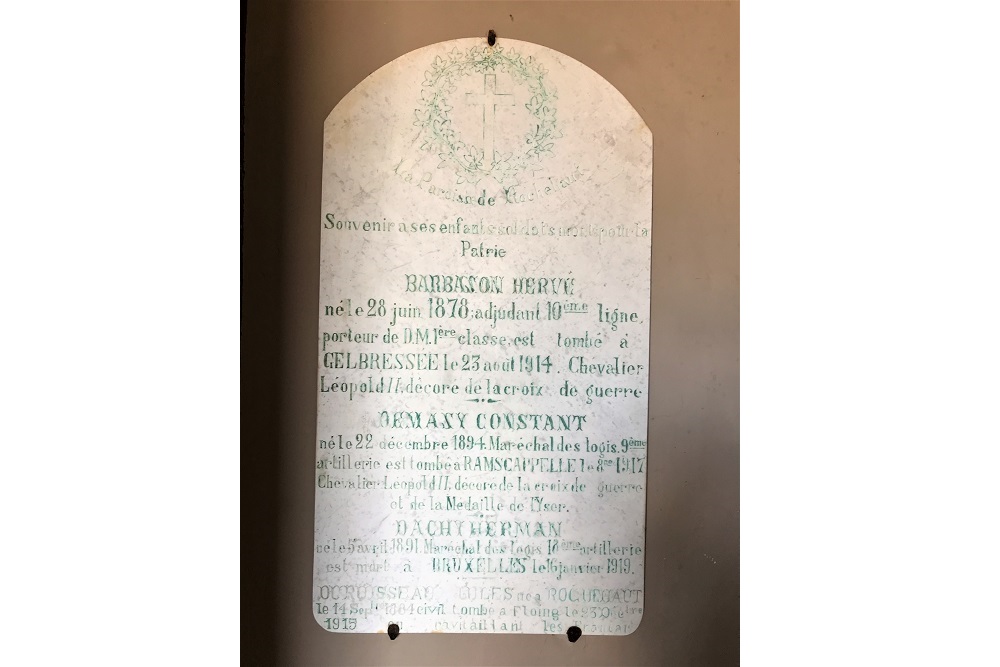 La Paroisse de
Souvenir a ses enfants soldats morts pour la
Patrie
BARBASON HERVÉ
né le 28 juin 1878, adjudant 10ème ligne,
porteur de D.M. 1ère classe, est tombé à
GELBRESSÉE le 23 août 1914. Chevalier
Léopold II, décoré de la croix de guerre
DEMASY CONSTANT
né le 22 décembre 1894. Maréchal des logis, 9ème
artillerie est tombé à RAMSCAPPELLE le 8 1917
Chevalier Léopold II, décoré de la croix de guerre
et de la Médaille de l'Yser.
DACHT HERMAN
né le 5 avril 1891. Maréchal des logis 18ème artillerie
est mort à BRUXELLES le 16 janvier 1919.
JULES né a ROCQUEHAUT
le 14 Sept 1864 civil tombé a le 23
1915 en ravitaillant les